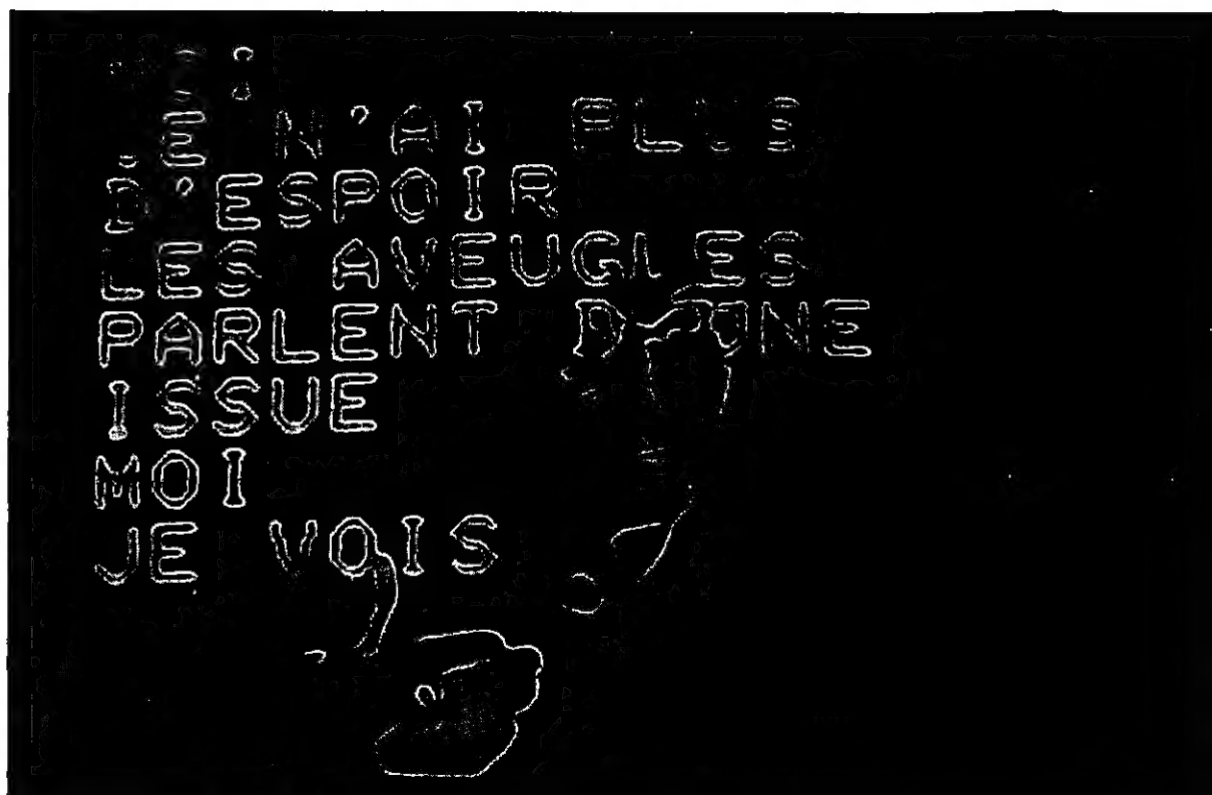 JE N'AI PLUS
D'ESPOIR
LES AVEUGLES
PARLENT D'UNE
ISSUE
MOI
JE VOIS